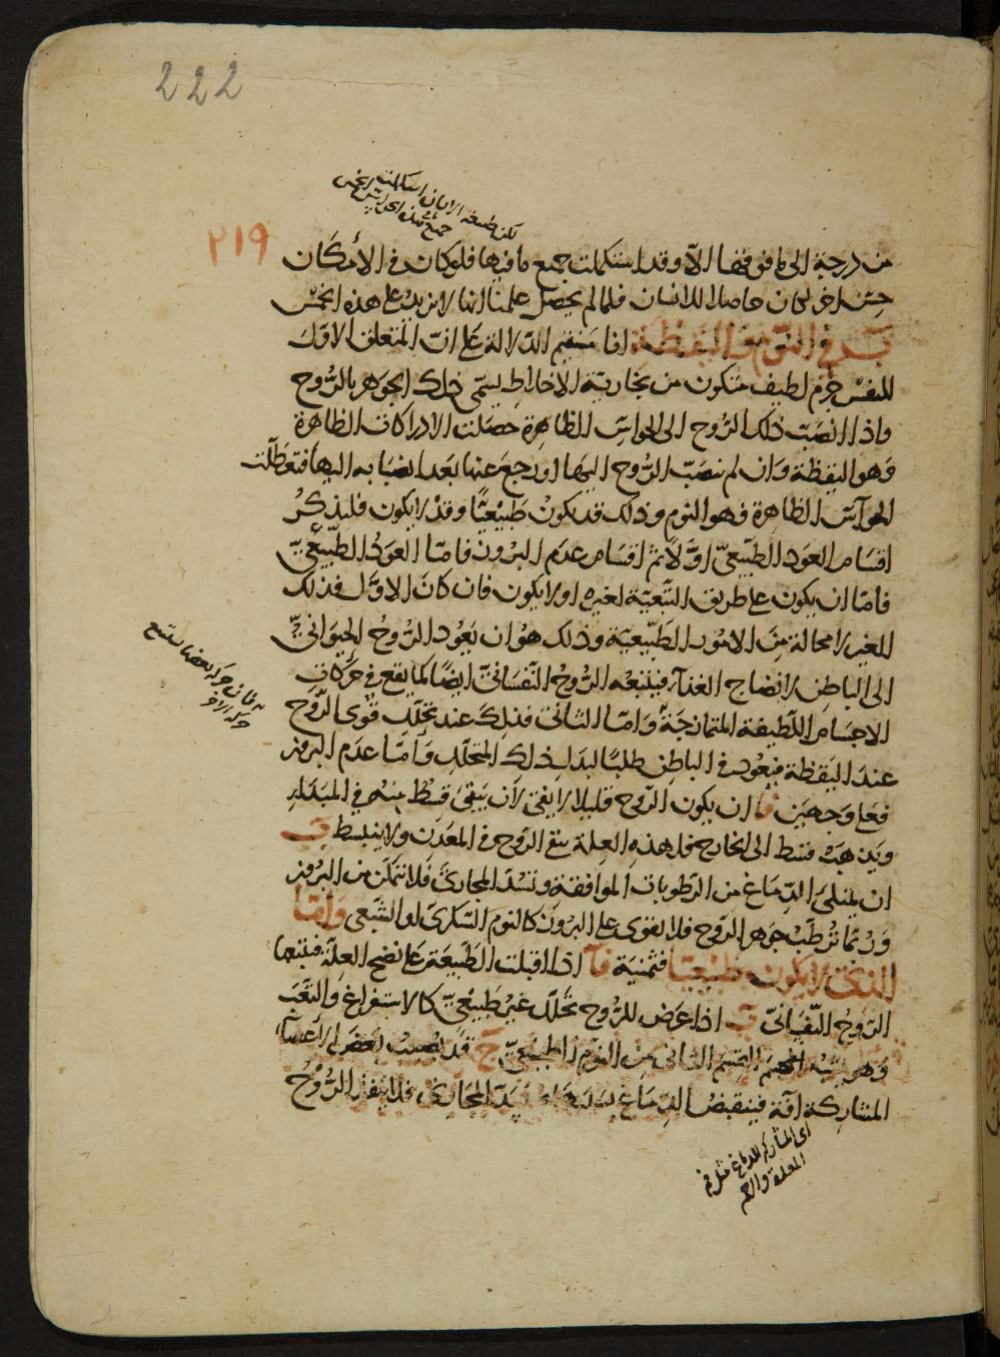 222
٢١٩
من درجة الى ما فوقها الا وقد استكملت جميع ما فيها فلو كان في الامكان
حس اخر لكان حاصلا للانسان فلما لم يحصل علمنا انها لا تزيد على هذه الخمس
في النوم واليقظة انا سنقيم الدلالة على ان المتعلق الاول
للنفس جرم لطيف متكون من بخارية الاخلاط يسمى ذلك الجوهر بالروح
واذا انصب ذلك الروح الى الحواس الظاهرة حصلت الادراكات الظاهرة
وهو اليقظة وان لم ينصب الروح اليها او رجع عنها بعد انصبابه اليها فتعطلت
الحواس الظاهرة فهو النوم وذلك قد يكون طبيعيا وقد لا يكون فلنذكر
اقسام العود الطبيعي اولا ثم اقسام عدم البروز فاما العود الطبيعي
فاما ان يكون على طريق التبعية لغيره او لا يكون فان كان الاول فذلك
الغير لا محالة من الامور الطبيعية وذلك هو ان يعود الروح الحيواني
الى الباطن لانضاج الغذاء فيتبعه الروح النفساني ايضا كما يقع في حركات
الاجسام اللطيفة المتمازجة واما الثاني فذلك عند تحلل قوى الروح
عند اليقظة فيعود في الباطن طلبا لبدل ذلك المتحلل واما عدم البروز
فعلى وجهين ا ان يكون الروح قليلا لا يفي لان يبقى قسط منه في المبدا
ويذهب قسط الى الخارج فلهذه العلة يبقى الروح في المعدن ولا ينبسط ب
ان يمتلى الدماغ من الرطوبات الموافقة وتنسد المجاري فلا تتمكن من البروز
وربما ترطب جوهر الروح فلا يقوى على البروز كالنوم السكرى او الشبعى واما
الذي لا يكون طبيعيا فثمنية ا اذا اقبلت الطبيعة على نضج العلة فيتبعها
الروح النفساني ب اذا عرض للروح تحلل غير طبيعي كالاستفراغ والتعب
وهو يشبه القسم الثاني من النوم الطبيعي ج قد يصيب بعض الاعضاء
المشاركة آفة فينقبض الدماغ بسببها وينسد المجاري فلا ينفذ الروح
اى المشاركة للدماغ مثل فم
المعدة والرحم